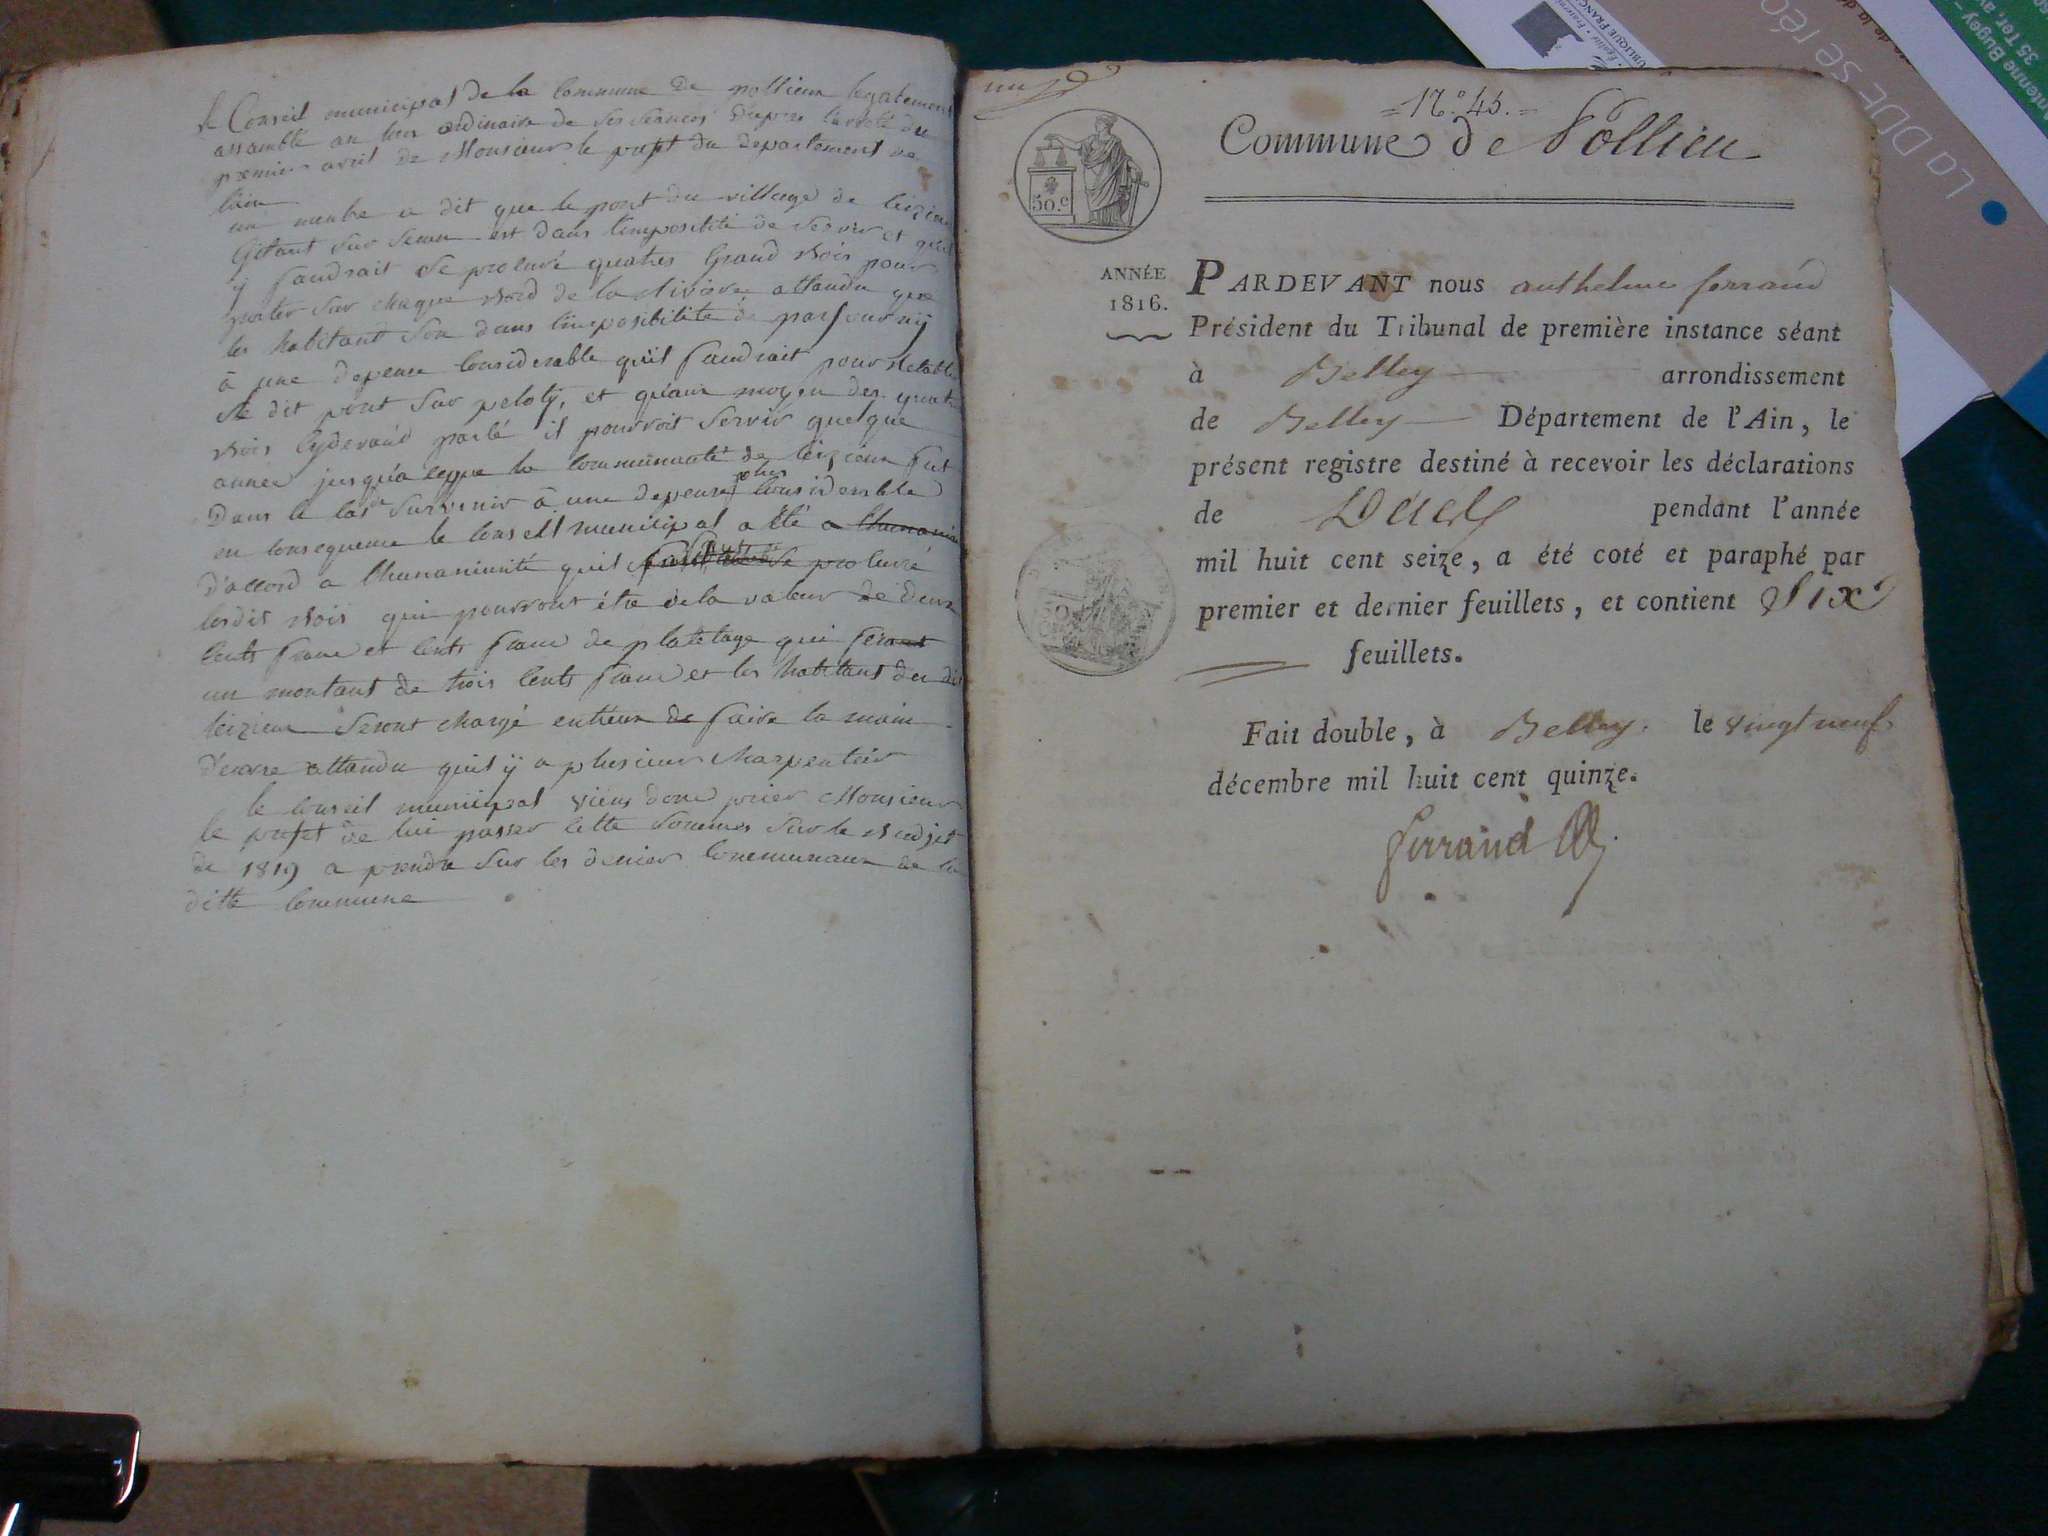 le Conseil municipal de la Commune de pollieu legalement
assamblé au lieu ordinaire de ses séances d'apres l'arreté du
premier avril de Monsieur le prefet du departement de
lain
un menbre a dit que le pont du village de leizieu
Gitant sur Seran est dans limposibilité de servir et quil
y faudrait se procuré quatres Grand Bois pour
de la Rivière attandu que
les habitant son dans limposibilité de parfournÿ
à une depence Considerable qu'il faudrait pour Retablir
le dit pont sur et quaux moyen des quatre
Bois cydevand parlé il pourroit servir quelque
année jusqu'a la Communauté de leizieux fut
Dans le Cas survenir à une depence plus Considerble
en Consequence le Conseil municipal a été
D'accord a lhunanimité quil se procuré
lesdit Bois qui pourront étre de la valeur de Deux
Cents franc et Cents franc de platelage qui feront
un montant de trois Cents franc et les habitant du dit
leizieu Seront chargé de faire la main
D'euvre attandu quil ÿ a plusieur Charpentier
le Conseil municipal viens donc prier Monsieur
le prefet de lui passer Cette Somme Sur le Budjet
de 1819 a prendre sur les denier Communaux de la
ditte Commune
un
=N.° 45.=
Commune de Pollieu
50.c
ANNÉE
1816.
PARDEVANT nous anthelme ferrand
Président du Tribunal de première instance séant
à Belley arrondissement
de Belley Département de l'Ain, le
présent registre destiné à recevoir les déclarations
de Décès pendant l'année
mil huit cent seize, a été coté et paraphé par
premier et dernier feuillets, et contient Six
feuillets.
Fait double, à Belley. le vingt neuf
décembre mil huit cent quinze.
ferrand
La DDE se réo